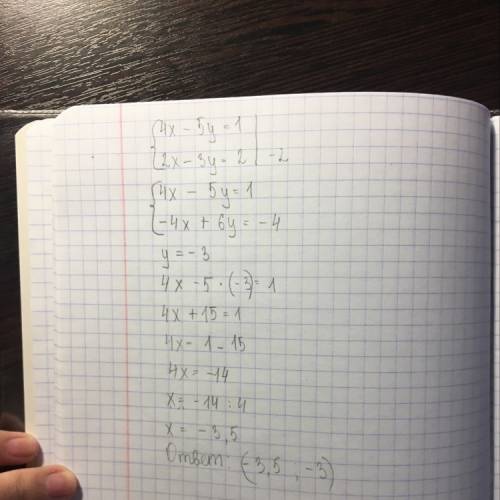 {4x - 5y = 1 |
{2x - 3y = 2 | -2
{4x - 5y = 1
{-4x + 6y = -4
y = -3
4x - 5 · (-3) = 1
4x + 15 = 1
4x = 1 - 15
4x = -14
x = -14 : 4
x = -3,5
Ответ: (-3,5 , -3)